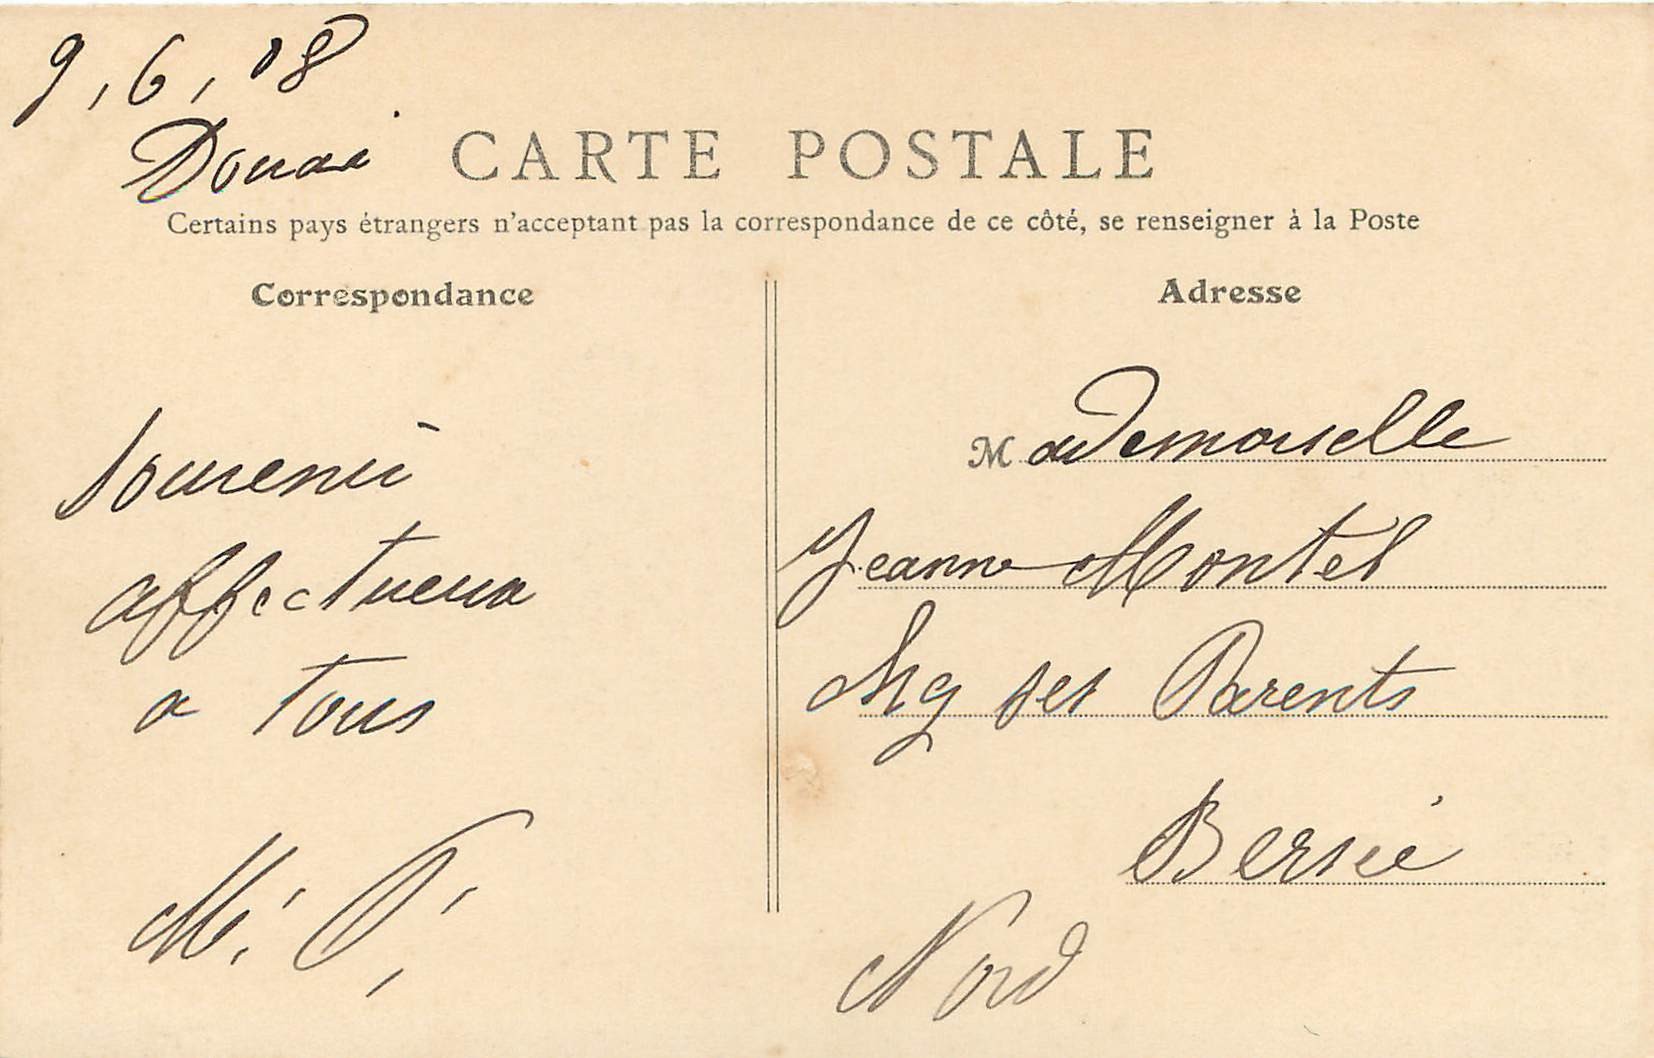 9, 6, 08
Douai
CARTE POSTALE
Certains pays étrangers n'acceptant pas la correspondance de ce côté, se renseigner à la Poste
Correspondance
Souvenir
affectueux
a tous
M. P.
Adresse
Mademoiselle
Jeanne Montel
chez ses Parents
Bersée
Nord